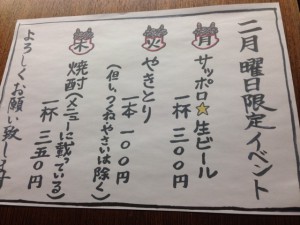 二月 曜日限定イベント
月 サッポロ☆生ビール
一杯 三〇〇円
火 やきとり
一本 一〇〇円
(但し、つくね、やさいは除く)
木 焼酎(メニューに載っている)
一杯 三五〇円
よろしくお願い致します